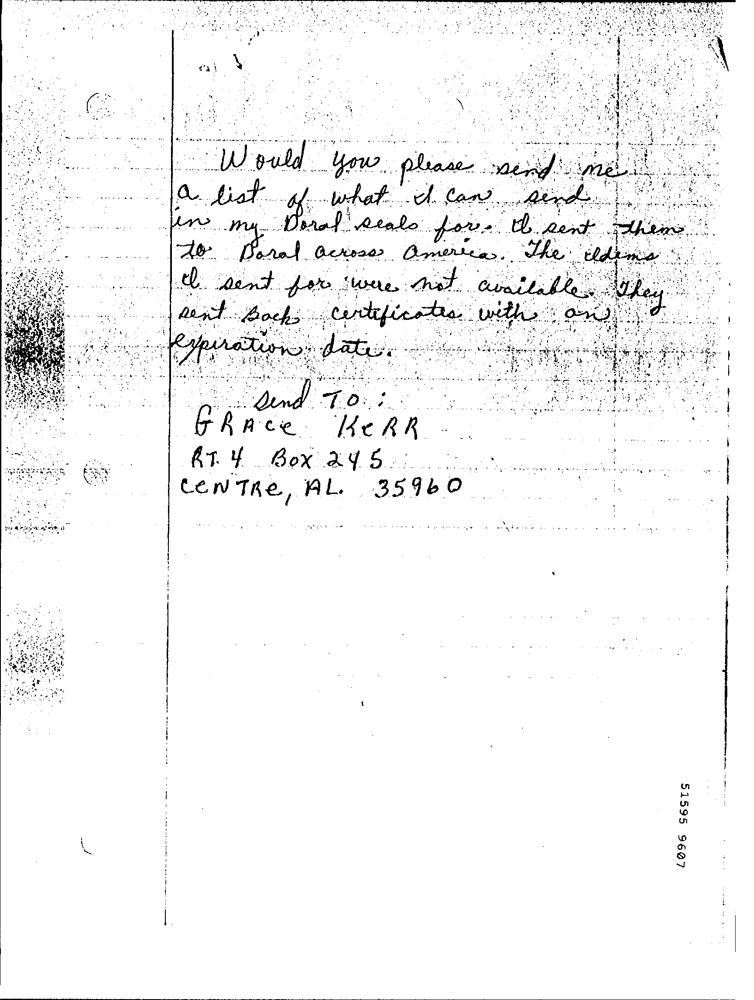 Would you please send me
a list of what I can send
in my Doral seals for. I sent them
to Doral across America. The iddems
I sent for were not available. They
sent Back certificates with an
expiration date.
Send To:
GRACE KERR
RT. 4 Box 245
CENTRE, AL. 35960
51595 9607